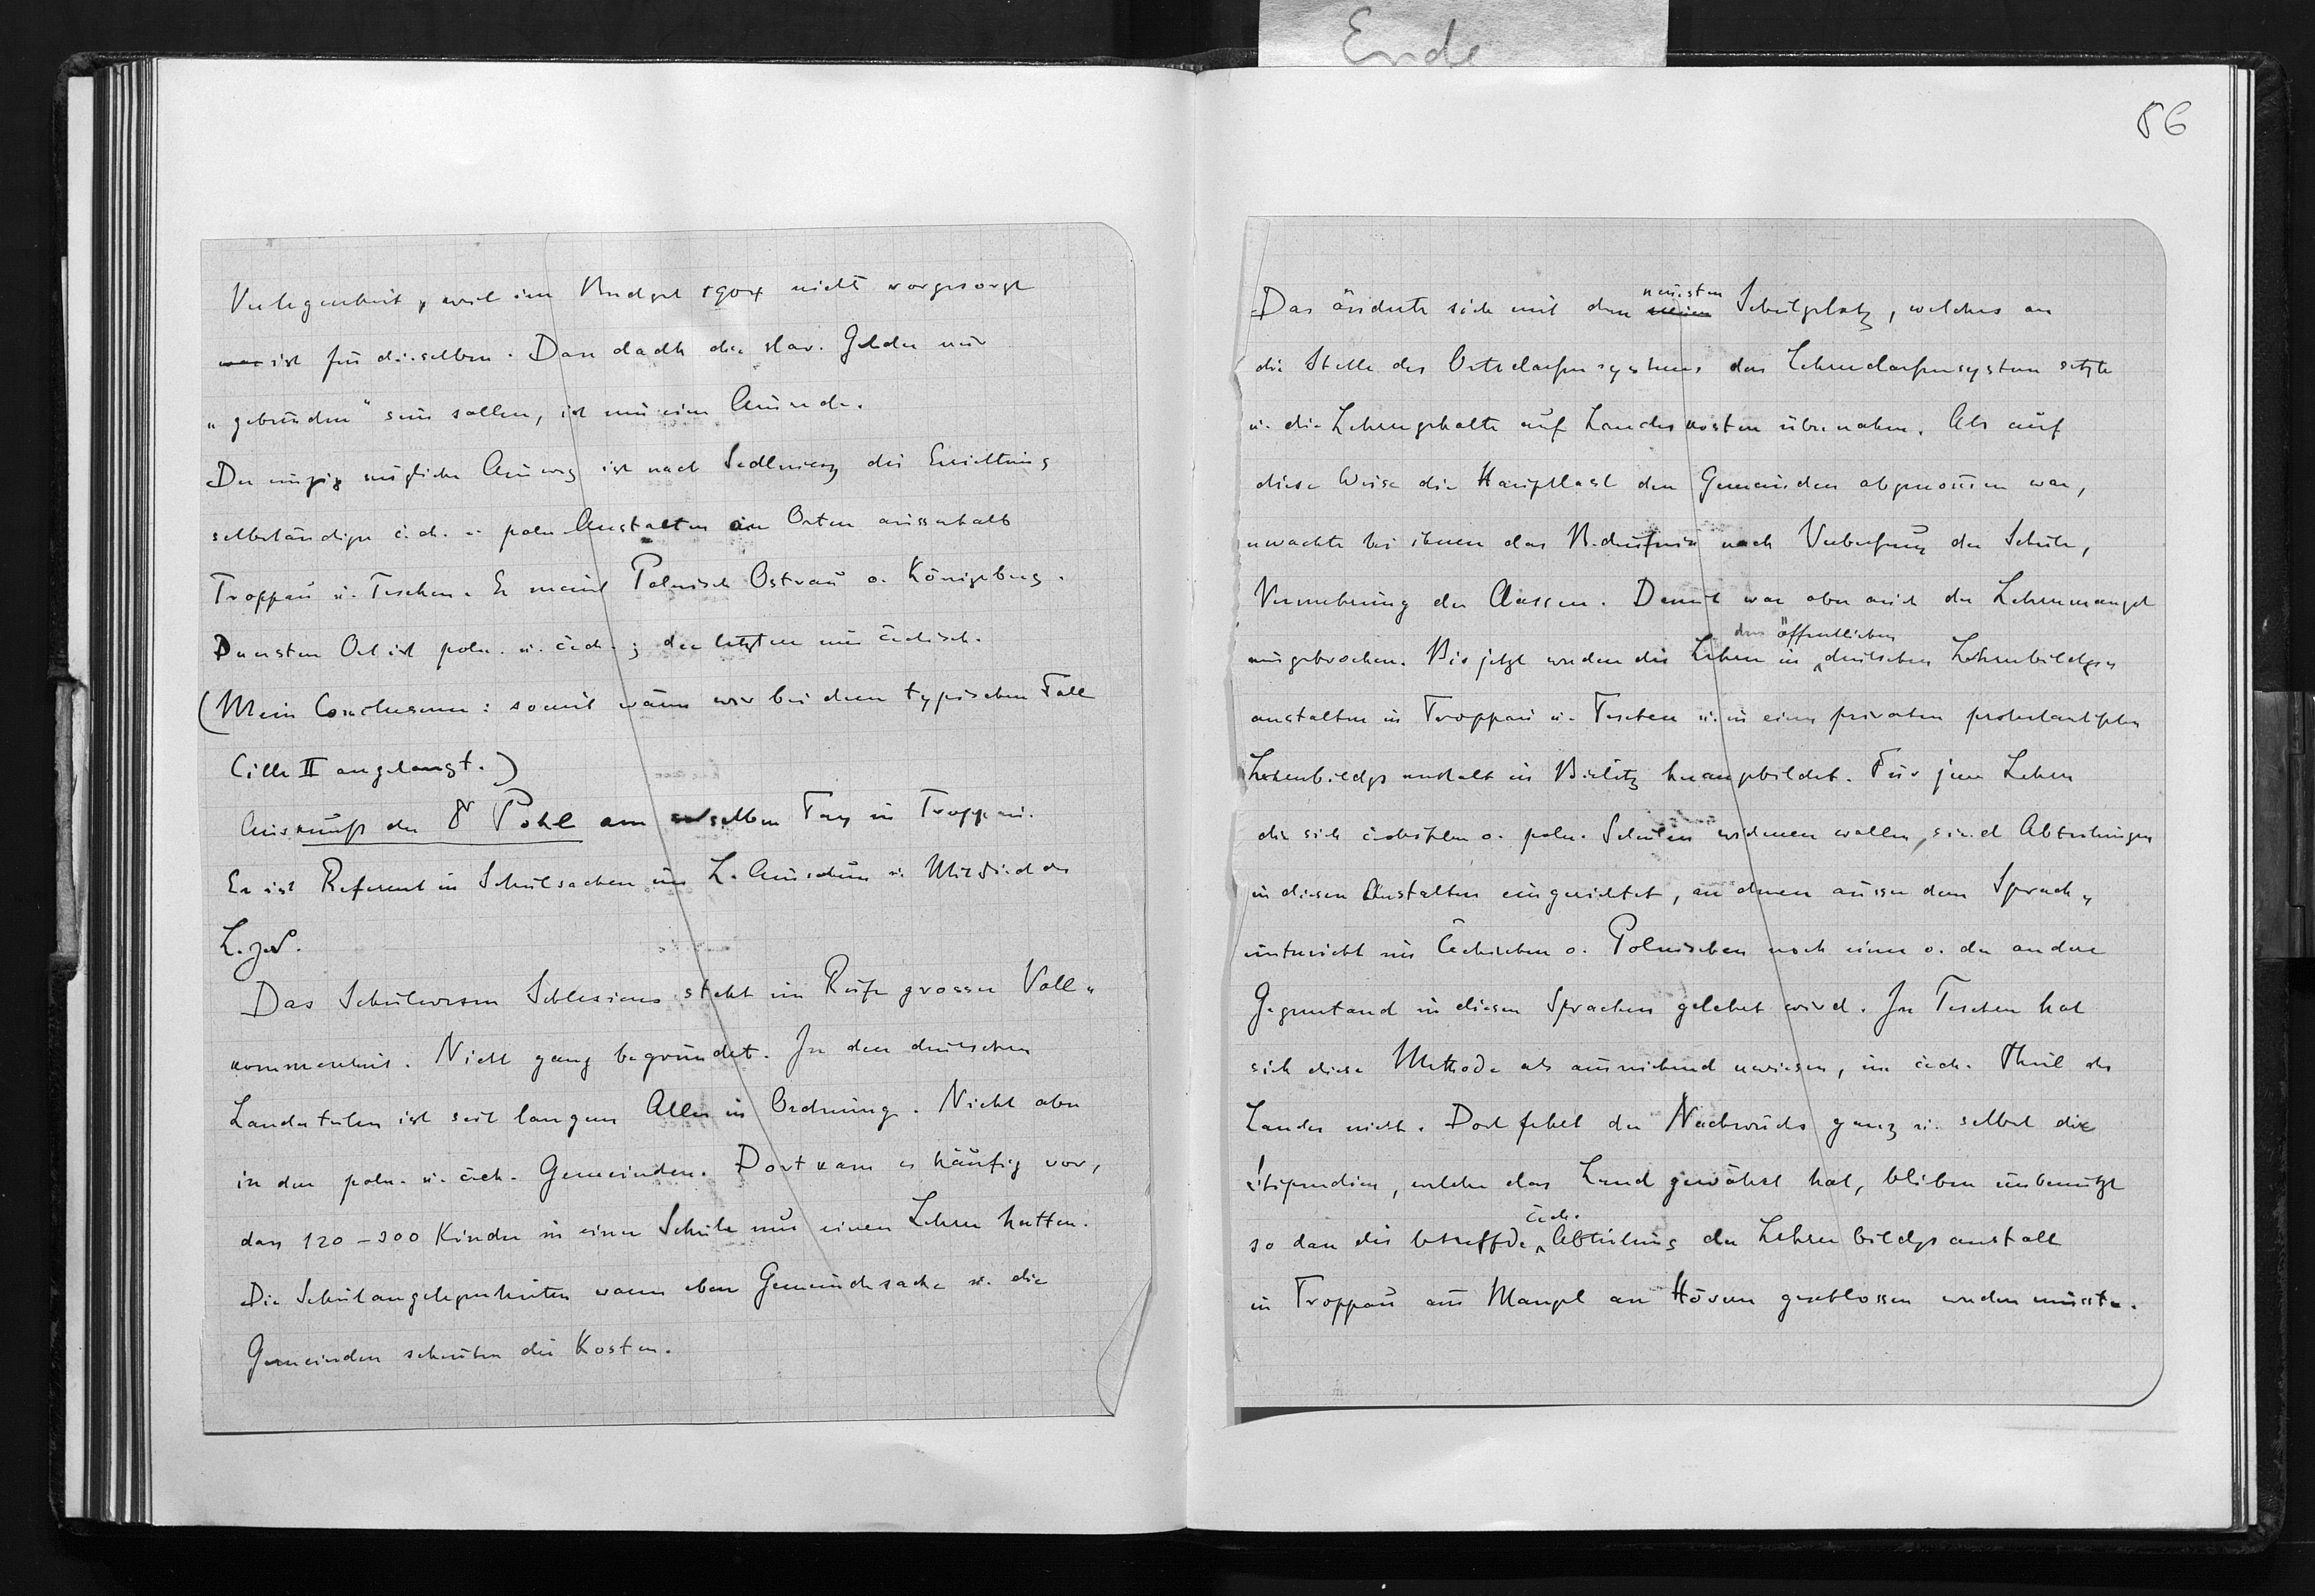 Ende
86
Verlegenheit, weil im Budget 1904 nicht vorgesorgt
war ist für dieselben. Dass dadh die slav. Gelder nur
„gebunden" sein sollen, ist nur eine Ausrede.
Der einzig mögliche Ausweg ist nach Sedlnicky die Errichtung
selbständiger čech. u. poln. Anstalten in Orten ausserhalb
Troppau u. Teschen. Er meint Polnisch Ostrau o. Königsberg.
D ersten Ort ist poln. u. čech.; der letztere nur čechisch.
(Mein Conclusum: somit wären wir bei dem typischen Fall
Cilli II angelangt.)
Auskunft des Dr Pohl am selben Tag in Troppau.
Er ist Referent in Schulsachen im L. Ausschuss u. Mitglied des
L.
Das Schulwesen Schlesiens steht im Rufe grosser Voll„
kommenheit. Nicht ganz begründet. In den deutschen
Landesteilen ist seit langem Alles in Ordnung. Nicht aber
in den poln. u. čech. Gemeinden. Dort kam es häufig vor,
dass 120–200 Kinder in einer Schule nur einen Lehrer hatten.
Die Schulangelegenheiten waren eben Gemeindesache u. die
Gemeinden scheuten die Kosten.
Das änderte sich mit dem neuen neuesten Schulgesetz, welches an
die Stelle des Ortsclassensystems das Lehrerclassensystem setzte
u. die Lehrergehalte auf Landeskosten übernahm. Als auf
diese Weise die Hauptlast den Gemeinden abgenommen war,
erwachte bei ihnen das Bedürfnis nach Verbesserung der Schule,
Vermehrung der Classen. Damit war aber auch der Lehrermangel
ausgebrochen. Bis jetzt werden die Lehrer in den öffentlichen deutschen Lehrerbildgs
anstalten in Troppau u. Teschen u. in einer privaten protestantischen
Lehrerbildgsanstalt in Bielitz herangebildet. Für jene Lehrer
die sich čechischen o. poln. Schulen widmen wollen, sind Abteilungen
in diesen Anstalten eingerichtet, an denen ausser dem Sprach„
unterricht im Čechischen o. Polnischen noch einer o. der andere
Gegenstand in diesen Sprachen gelehrt wird. In Teschen hat
sich diese Methode als ausreichend erwiesen, im čech. Theil des
Landes nicht. Dort fehlt der Nachwuchs ganz u. selbst die
Stipendien, welche das Land gewährt hat, blieben unbenützt
so dass die betreffde čech. Abteilung der Lehrerbildgsanstalt
in Troppau aus Mangel an Hörern geschlossen werden musste.